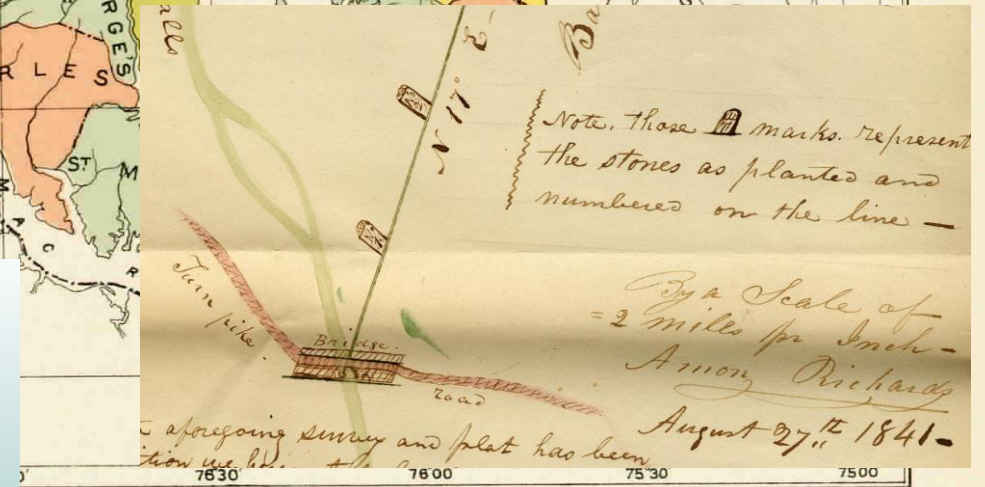 RGE'S
R L E S
ST. M
M
A
C
R
alls
N 17° E
Ba
Note. those marks. represent
the stones as planted and
numbered on the line —
By a Scale of
= 2 miles pr Inch -
Amon Richards
August 27th 1841-
Turn pike.
Bridge.
road
aforegoing survey and plat has been
tion we
76°30'
76°00'
75°30'
75°00'